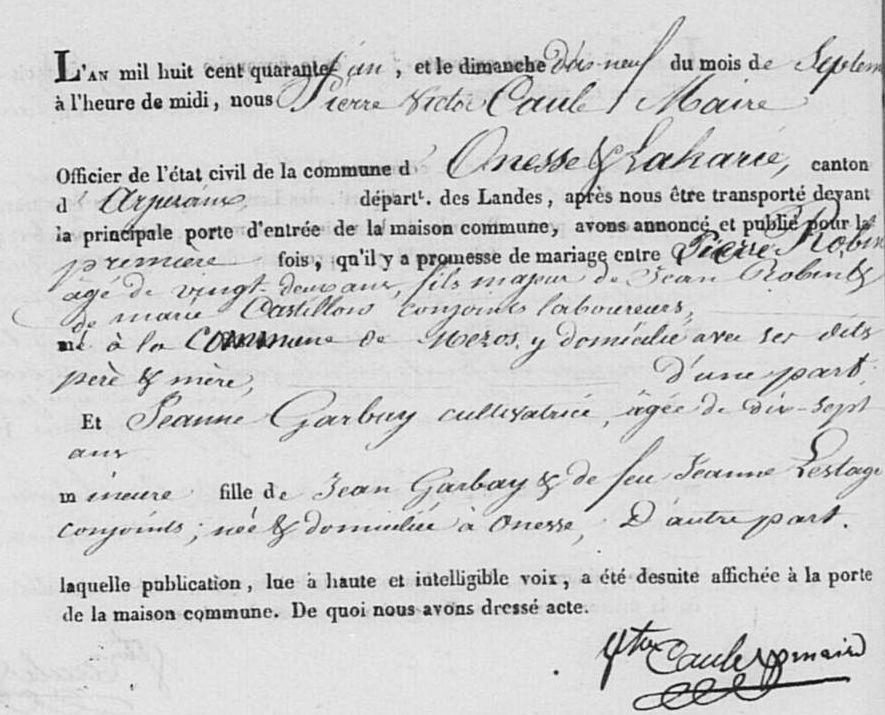 L'AN mil huit cent quarante un, et le dimanche dix-neuf du mois de Septem
à l'heure de midi, nous Pierre Victor Caule Maire
Officier de l'état civil de la commune d' Onesse & Laharie, canton
d' Arjuzanx, départt. des Landes, après nous être transporté devant
la principale porte d'entrée de la maison commune, avons annoncé et publié pour la
première fois, qu'il y a promesse de mariage entre Pierre Robin
âgé de vingt deux ans, fils majeur de Jean Robin &
de marie Castillon conjoints laboureurs,
né à la Commune de Mezos, y domicilié avec ses dits
père & mère, d'une part;
Et Jeanne Garbay cultivatrice, âgée de dix-sept
ans
mineure fille de Jean Garbay & de feu Jeanne Lestage
conjoints; née & domiciliée à Onesse, D'autre part.
laquelle publication, lue à haute et intelligible voix, a été desuite affichée à la porte
de la maison commune. De quoi nous avons dressé acte.
Caule maire